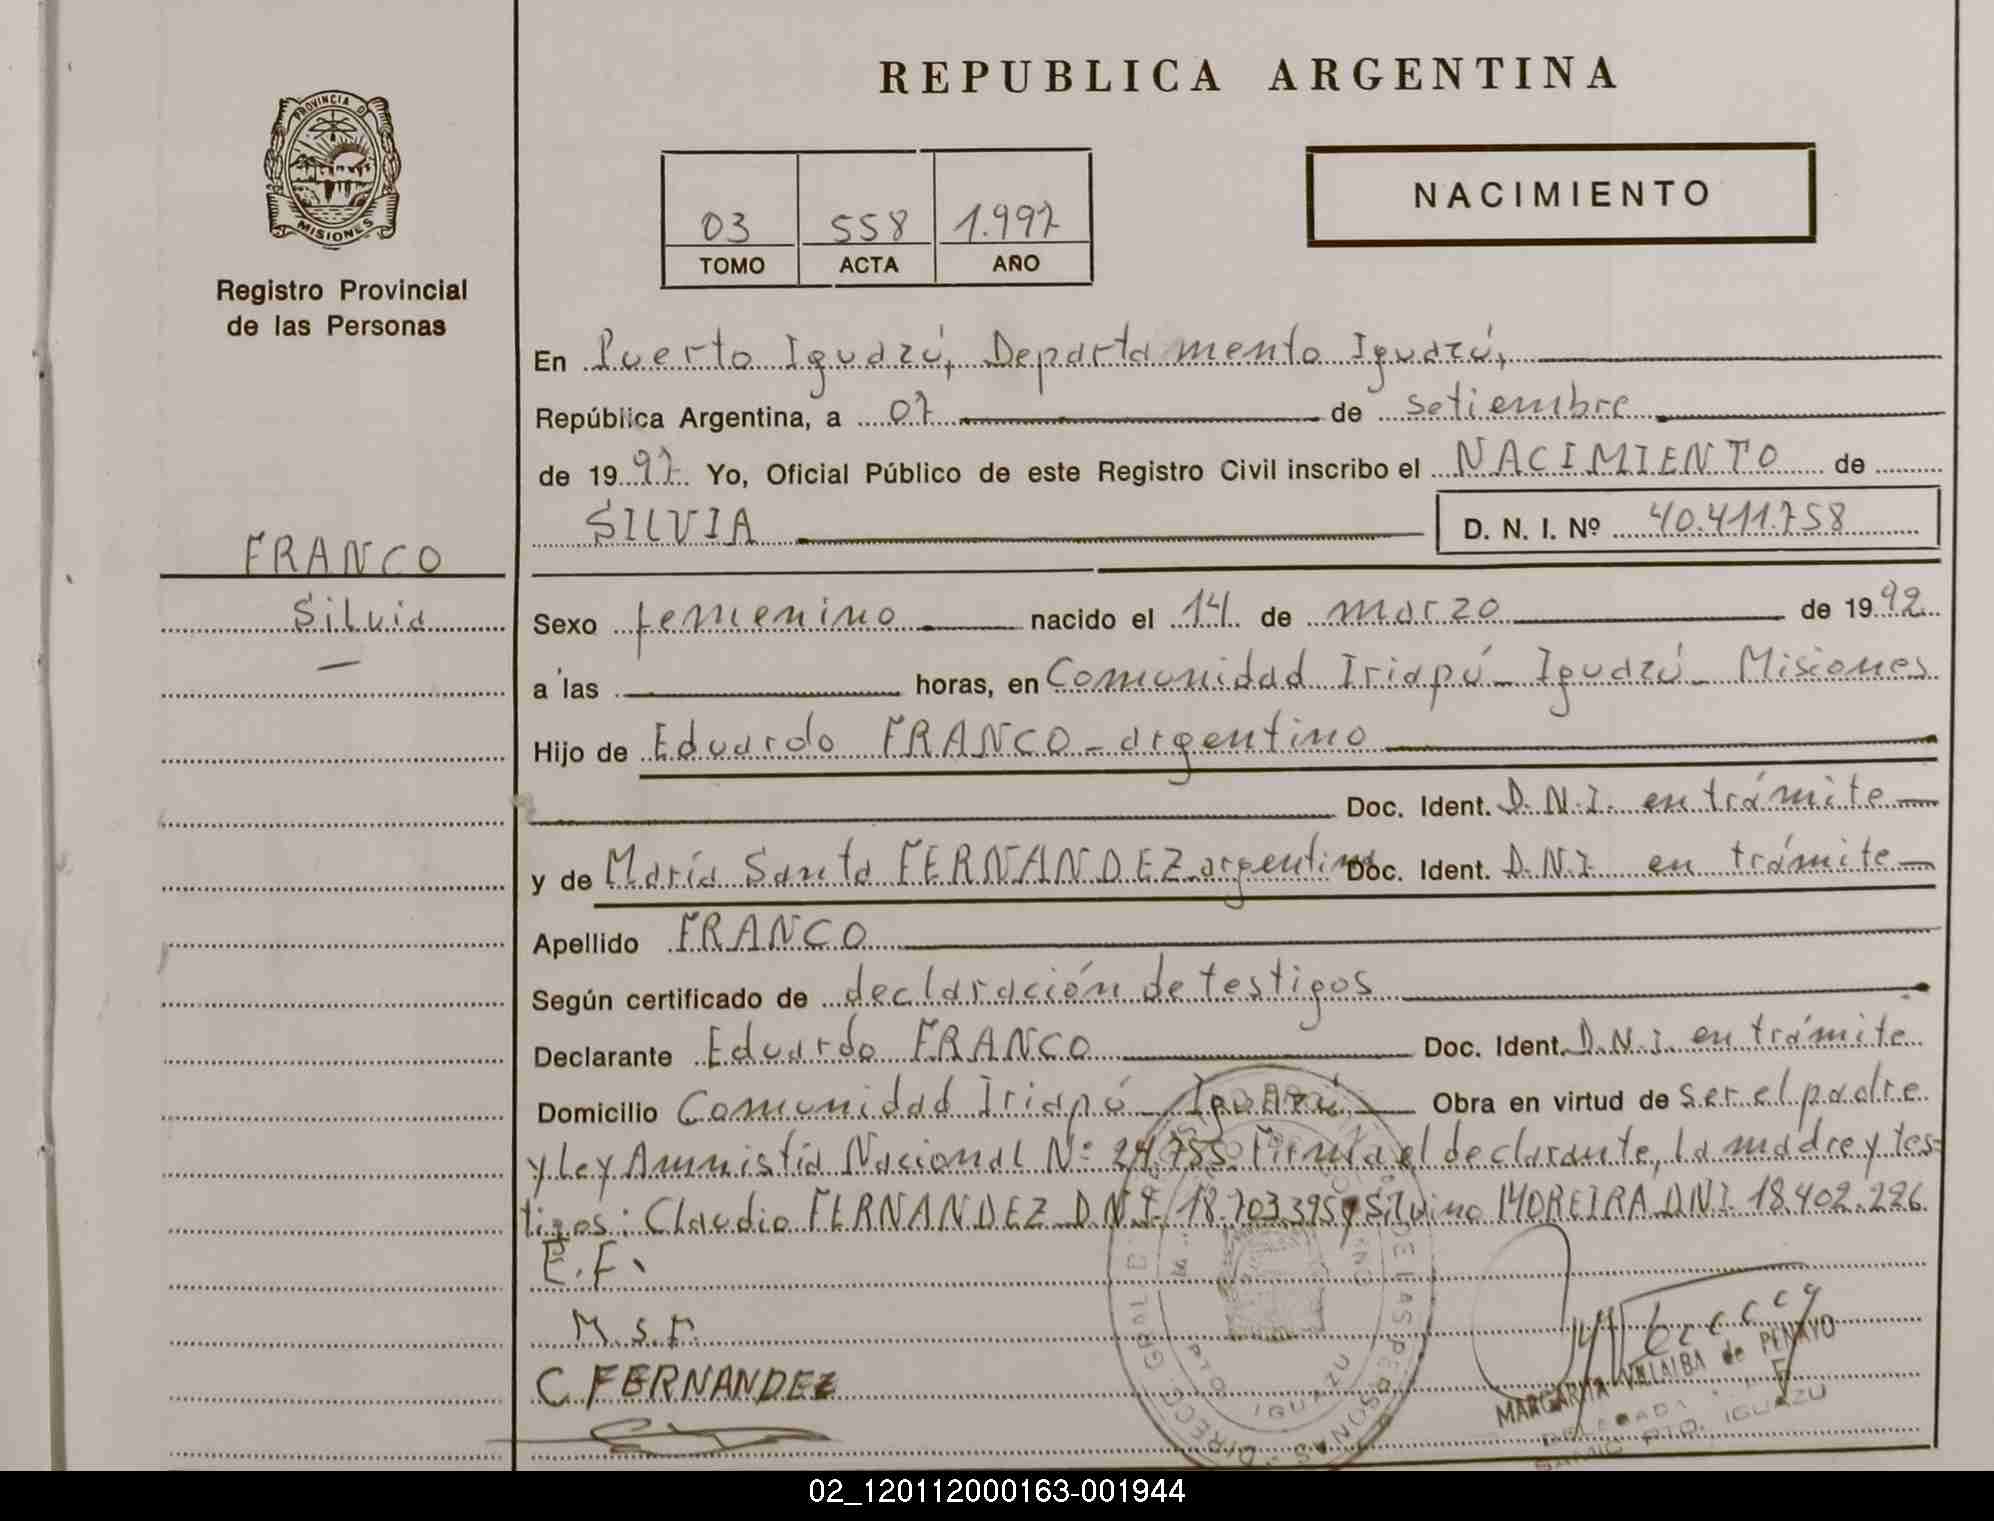 REPUBLICA ARGENTINA
PROVINCIA D
MISIONES
Registro Provincial
de las Personas
03 558 1.997
TOMO ACTA AÑO
NACIMIENTO
En Puerto Iguazú, Departamento Iguazú,
República Argentina, a 07 de setiembre
de 1997 Yo, Oficial Público de este Registro Civil inscribo el NACIMIENTO de
SILVIA D. N. I. Nº 40.411.758
FRANCO
Silvia
Sexo femenino nacido el 14 de marzo de 1992
a las horas, en Comunidad Iriapú - Iguazú - Misiones
Hijo de Eduardo FRANCO - argentino
Doc. Ident. D.N.I. en trámite
y de María Santa FERNANDEZ - argentina Doc. Ident. D.N.I. en trámite
Apellido FRANCO
Según certificado de declaración de testigos
Declarante Eduardo FRANCO Doc. Ident. D.N.I. en trámite
Domicilio Comunidad Iriapú - Iguazú Obra en virtud de ser el padre
y Ley Amnistía Nacional Nº 24.755. Firma el declarante, la madre y tes-
tigos: Claudio FERNANDEZ D.N.I. 18.703.395 y Silvino MOREIRA DNI. 18.402.226.
E.F.
M.S.F.
C. FERNANDEZ
DIRECC. GRAL DE LAS PERSONAS
PTO IGUAZU
MARGARITA VILLALBA de PENAYO
PTO. IGUAZU
02_120112000163-001944